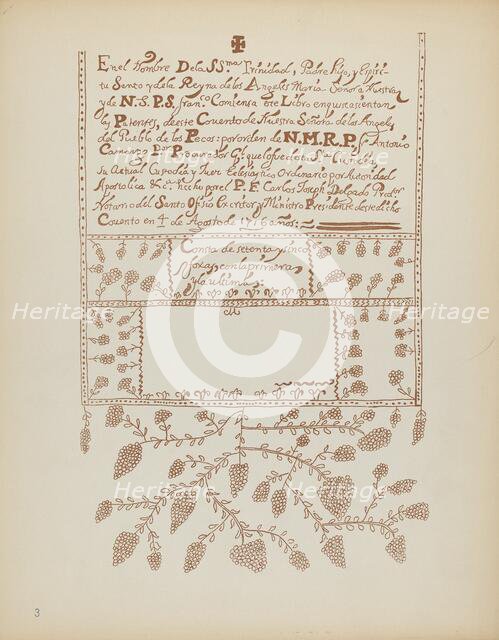 En el Nombre De la SSma. Trinidad, Padre Hijo, y Espiri-
tu Santo y de la Reyna de los Angeles Maria Señora Nuestra
y de N. S. P. S. Franco. Comiensa este Libro en que se asientan
las Patentes, de este Convento de Nuestra Señora de los Angeles
del Pueblo de los Pecos: por orden de N. M. R. P. Fr. Antonio
Camargo Por Procurador Gl. que fue de esta Sta. Custodia,
Su Actual Custodio y Juez Eclesiastico Ordinario por Autoridad
Apostolica &ca. hecho por el P. F. Carlos Joseph Delgado Predor.
Notario del Santo Ofisio Escritor y Ministro Presidente de dicho
Convento en 4 de Agosto de 1716 años:
Consta de setenta y sinco
foxas, con la primera
y la ultima:
3
Heritage
Heritage
Heritage
Heritage
Heritage
Heritage
Heritage
Heritage